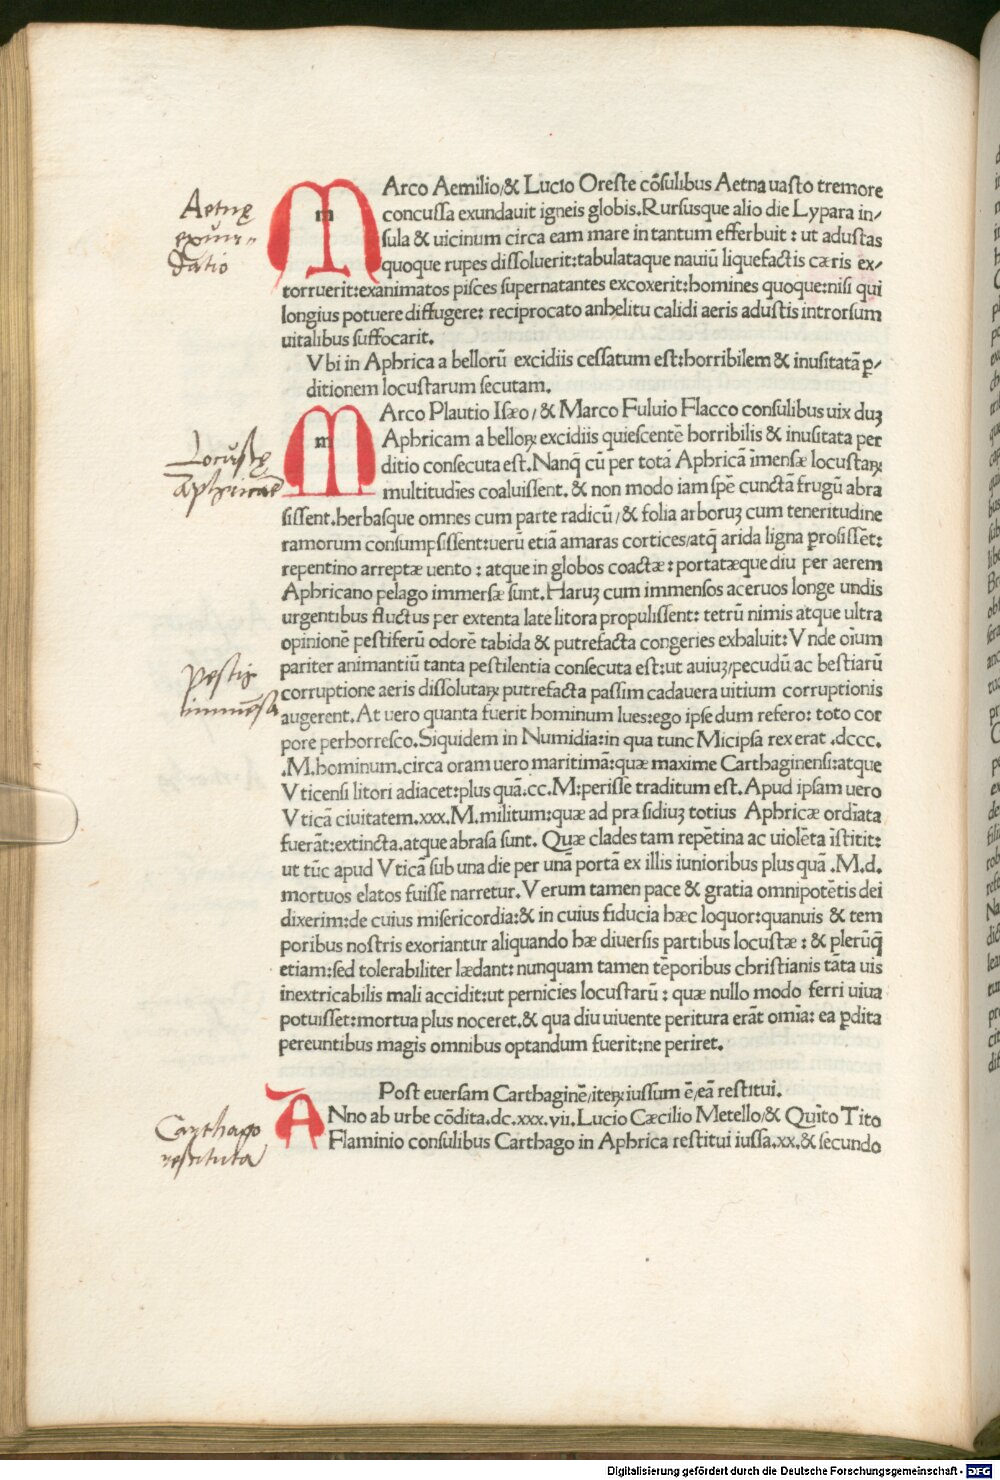 Aetnę
exun-
datio
MArco Aemilio/& Lucio Oreste cõsulibus Aetna uasto tremore
concussa exundauit igneis globis. Rursusque alio die Lypara in/
sula & uicinum circa eam mare in tantum efferbuit : ut adustas
quoque rupes dissoluerit: tabulataque nauiũ liquefactis cæris ex/
torruerit: exanimatos pisces supernatantes excoxerit: homines quoque: nisi qui
longius potuere diffugere: reciprocato anhelitu calidi aeris adustis introrsum
uitalibus suffocarit.
Vbi in Aphrica a bellorũ excidiis cessatum est: horribilem & inusitatã ꝑ/
ditionem locustarum secutam.
Locustę
aphricanę
MArco Plautio Isæo/& Marco Fuluio Flacco consulibus uix duꝫ
Aphricam a belloꝝ excidiis quiescentẽ horribilis & inusitata per
ditio consecuta est. Nanq̃ cũ per totã Aphricã ĩmensæ locustaꝝ
multitudĩes coaluissent. & non modo iam spẽ cunctã frugũ abra
sissent. herbasque omnes cum parte radicũ/& folia arboruꝫ cum teneritudine
ramorum consumpsissent: uerũ etiã amaras cortices/atq̃ arida ligna ꝑrosissẽt:
repentino arreptæ uento : atque in globos coactæ: portatæque diu per aerem
Aphricano pelago immersæ sunt. Haruꝫ cum immensos aceruos longe undis
urgentibus fluctus per extenta late litora propulissent: tetrũ nimis atque ultra
opinionẽ pestiferũ odorẽ tabida & putrefacta congeries exhaluit: Vnde oĩum
pestis
immẽsa
pariter animantiũ tanta pestilentia consecuta est: ut auiuꝫ/pecudũ ac bestiarũ
corruptione aeris dissolutaꝝ putrefacta passim cadauera uitium corruptionis
augerent. At uero quanta fuerit hominum lues: ego ipse dum refero: toto cor
pore perhorresco. Siquidem in Numidia: in qua tunc Micipsa rex erat .dccc.
.M. hominum. circa oram uero maritimã: quæ maxime Carthaginensi: atque
Vticensi litori adiacet: plus quã.cc. M: perisse traditum est. Apud ipsam uero
Vticã ciuitatem.xxx. M. militum: quæ ad præsidiuꝫ totius Aphricæ ordĩata
fuerãt: extincta. atque abrasa sunt. Quæ clades tam repẽtina ac uiolẽta ĩstitit:
ut tũc apud Vticã sub una die per unã portã ex illis iunioribus plus quã .M.d.
mortuos elatos fuisse narretur. Verum tamen pace & gratia omnipotẽtis dei
dixerim: de cuius misericordia: & in cuius fiducia hæc loquor: quanuis & tem
poribus nostris exoriantur aliquando hæ diuersis partibus locustæ : & plerũq̃
etiam: sed tolerabiliter lædant: nunquam tamen tẽporibus christianis tãta uis
inextricabilis mali accidit: ut pernicies locustarũ : quæ nullo modo ferri uiua
potuisset: mortua plus noceret. & qua diu uiuente peritura erãt omĩa: ea ꝑdita
pereuntibus magis omnibus optandum fuerit: ne periret.
Post euersam Carthaginẽ/iteꝝ iussum ẽ/eã restitui.
Carthago
restituta
ANno ab urbe cõdita.dc.xxx.vii. Lucio Cæcilio Metello/& Quĩto Tito
Flaminio consulibus Carthago in Aphrica restitui iussa.xx. & secundo
Digitalisierung gefördert durch die Deutsche Forschungsgemeinschaft - DFG